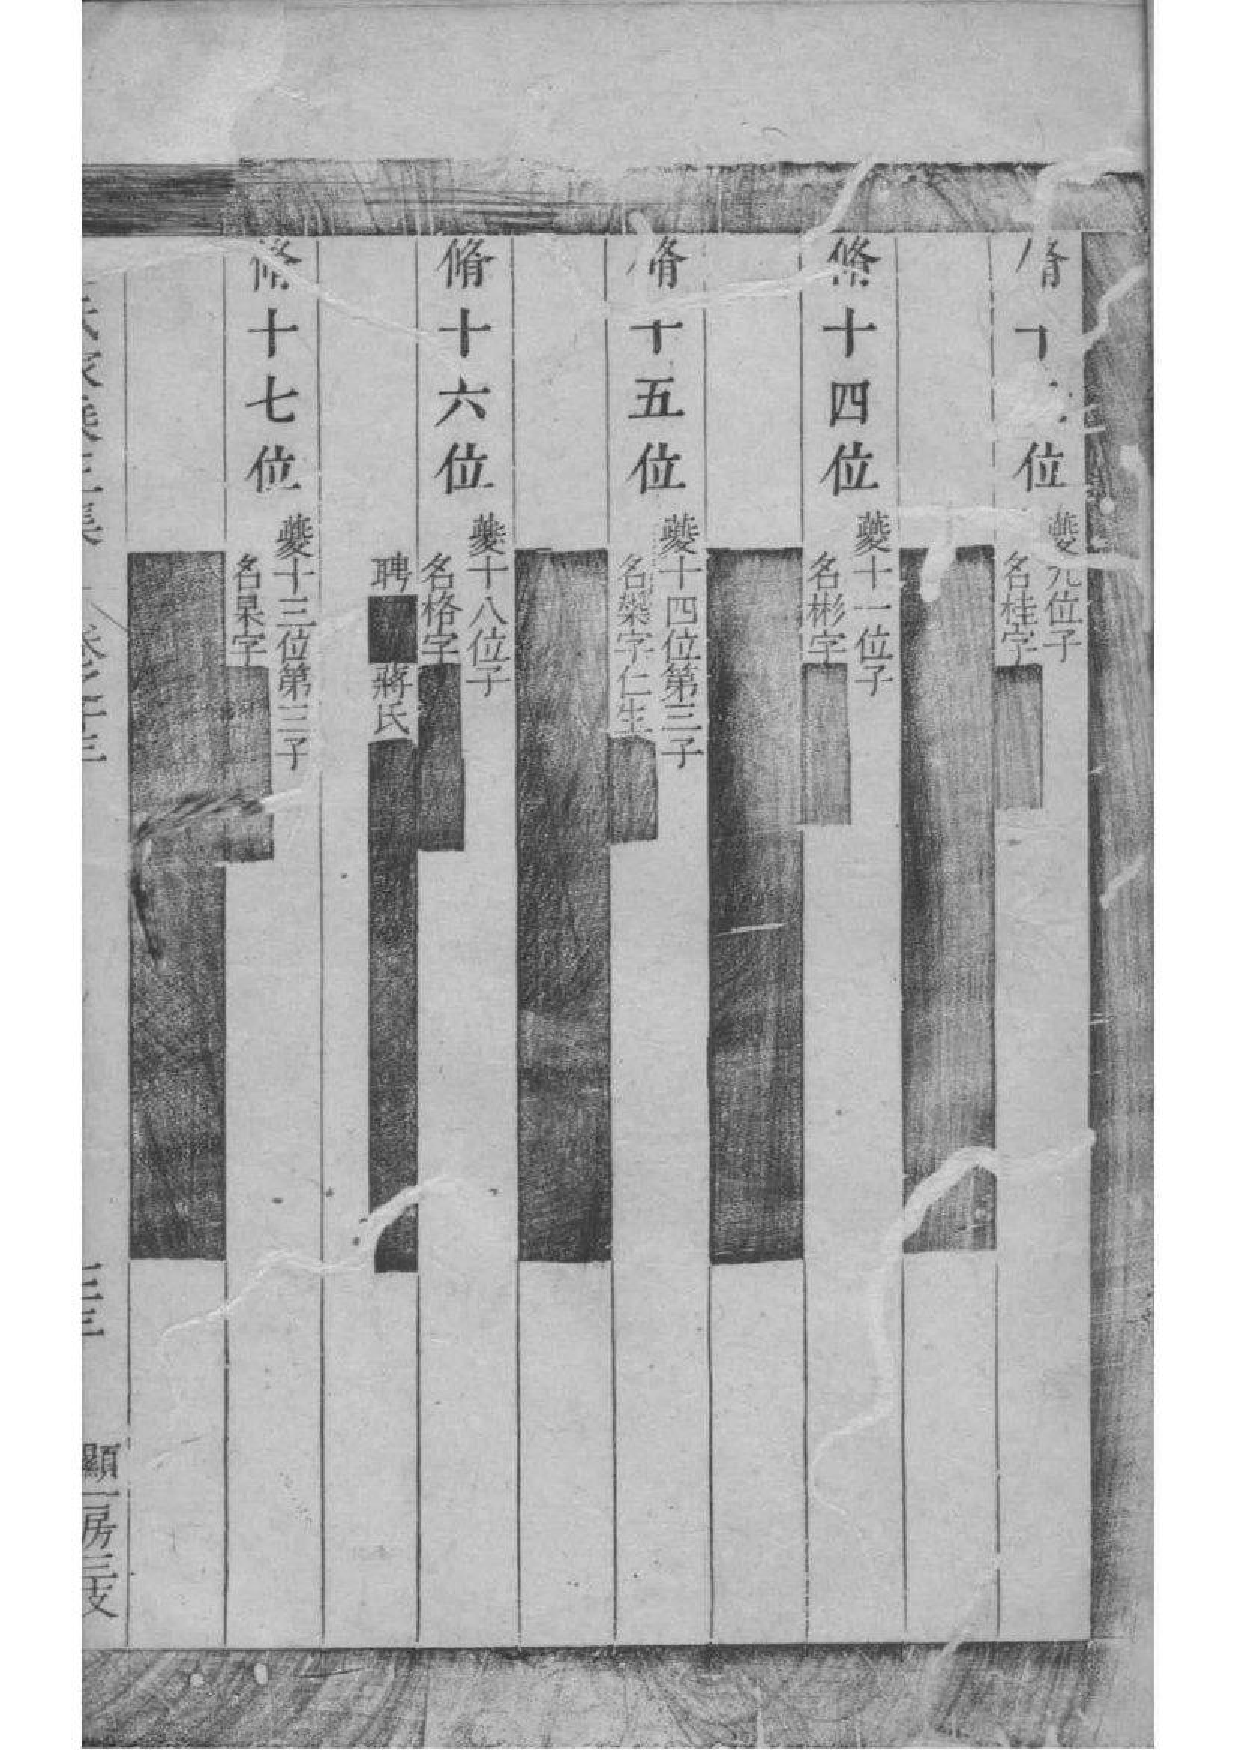 脩十位
夔九位子
名桂字
脩十四位
夔十一位子
名彬字
脩十五位
夔十四位第三子
名櫐字仁生
脩十六位
夔十八位子
名格字
聘
蔣氏
脩十七位
夔十三位第三子
名杲字
家乘
卷之
顯一房三支